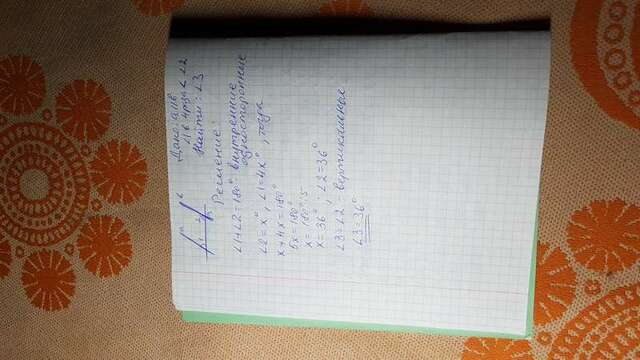 Дано: a||b
∠1 в 4 раза < ∠2
Найти: ∠3
Решение:
∠1+∠2=180° внутренние
односторонние
∠2=x°, ∠1=4x°, тогда
x+4x=180°
5x=180°
x=180°:5
x=36°; ∠2=36°
∠3=∠2 - вертикальные
∠3=36°